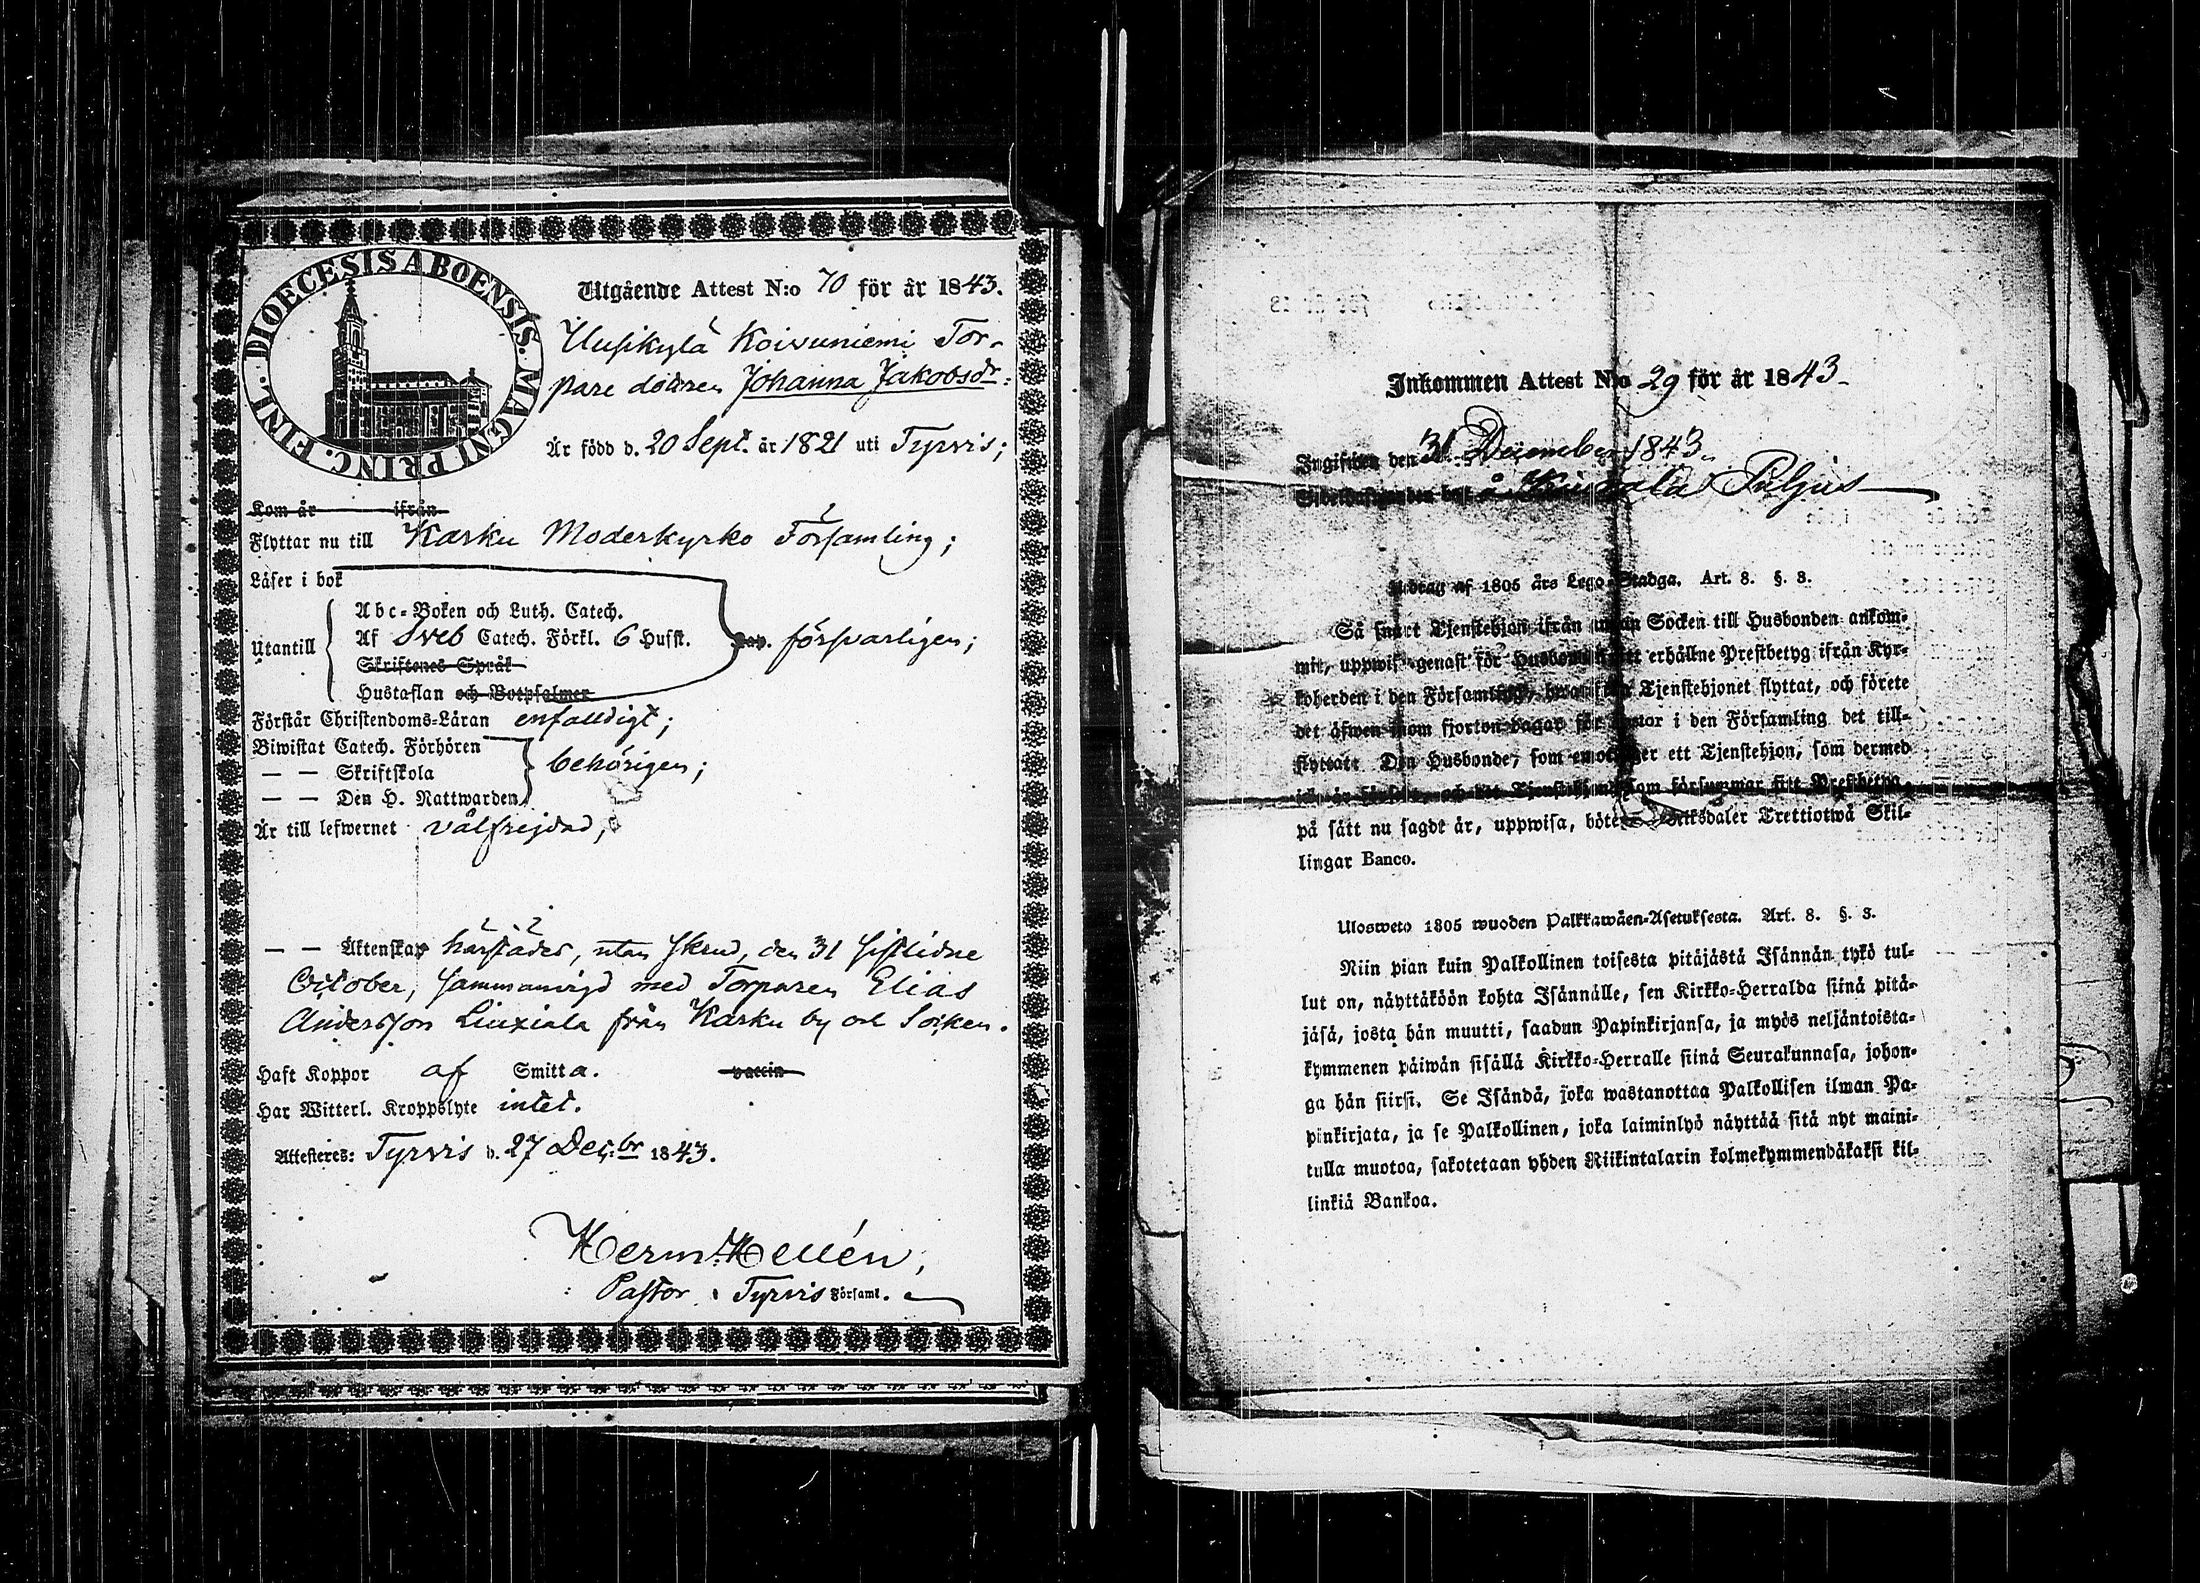 DIOECESIS ABOENSIS. MAGNI PRINC. FINL.
Utgående Attest N:o 70 för år 1843.
Uusikylä Koivuniemi Tor-
pare dottren Johanna Jakobsdr:
Är född d. 20 Sept. år 1821 uti Tyrvis;
Kom år ifrån
Flyttar nu till Karku Moderkyrko Församling;
Läser i bok
Abc-Boken och Luth. Catech.
Utantill Af Sveb Catech. Förkl. 6 Hufst. försvarligen;
Skriftenes Språk
Hustaflan och Botpsalmer
Förstår Christendoms-Läran enfalldigt;
Biwistat Catech. Förhören
— — Skriftskola behörigen;
— — Den H. Nattwarden
Är till lefwernet välfrejdad,
— — Äktenskap härstädes, utan skrud, den 31 sistlidne
October, sammanvigd med Torparen Elias
Andersson Liuxiala från Karku by och Socken.
Haft Koppor af Smitta. vaccin
Har Witterl. Kroppslyte intet.
Attesteres: Tyrvis d. 27 Dec:br 1843.
Herm: Hellén,
Pastor i Tyrvis Församl.
Inkommen Attest N:o 29 för år 1843
Ingifwen den 31 December 1843.
å Puljus
Utdrag af 1805 års Lego-Stadga. Art. 8. §. 3.
Så snart Tjenstehjon ifrån annan Socken till Husbonden ankom-
mit, uppwise genast för Husbonden det erhållne Prestbetyg ifrån Kyr-
koherden i den Församling, hwarifrån Tjenstehjonet flyttat, och förete
det äfwen inom fjorton dagar för Pastor i den Församling det till-
flyttat. Den Husbonde, som emottager ett Tjenstehjon, som dermed
ej är försedt, och det Tjenstehjon som försummar sitt Prestbetyg,
på sätt nu sagdt är, uppwisa, böte Riksdaler Trettiotwå Skil-
lingar Banco.
Ulosweto 1805 wuoden Palkkawäen-Asetuksesta. Art. 8. §. 3.
Niin pian kuin Palkollinen toisesta pitäjästä Isännän tykö tul-
lut on, näyttäköön kohta Isännälle, sen Kirkko-Herralda siinä pitä-
jäsä, josta hän muutti, saadun Papinkirjansa, ja myös neljäntoista-
kymmenen päiwän sisällä Kirkko-Herralle siinä Seurakunnasa, johon-
ga hän siirsi. Se Isändä, joka wastanottaa Palkollisen ilman Pa-
pinkirjata, ja se Palkollinen, joka laiminlyö näyttää sitä nyt maini-
tulla muotoa, sakotetaan yhden Riikintalarin kolmekymmendäkaksi kil-
linkiä Bankoa.